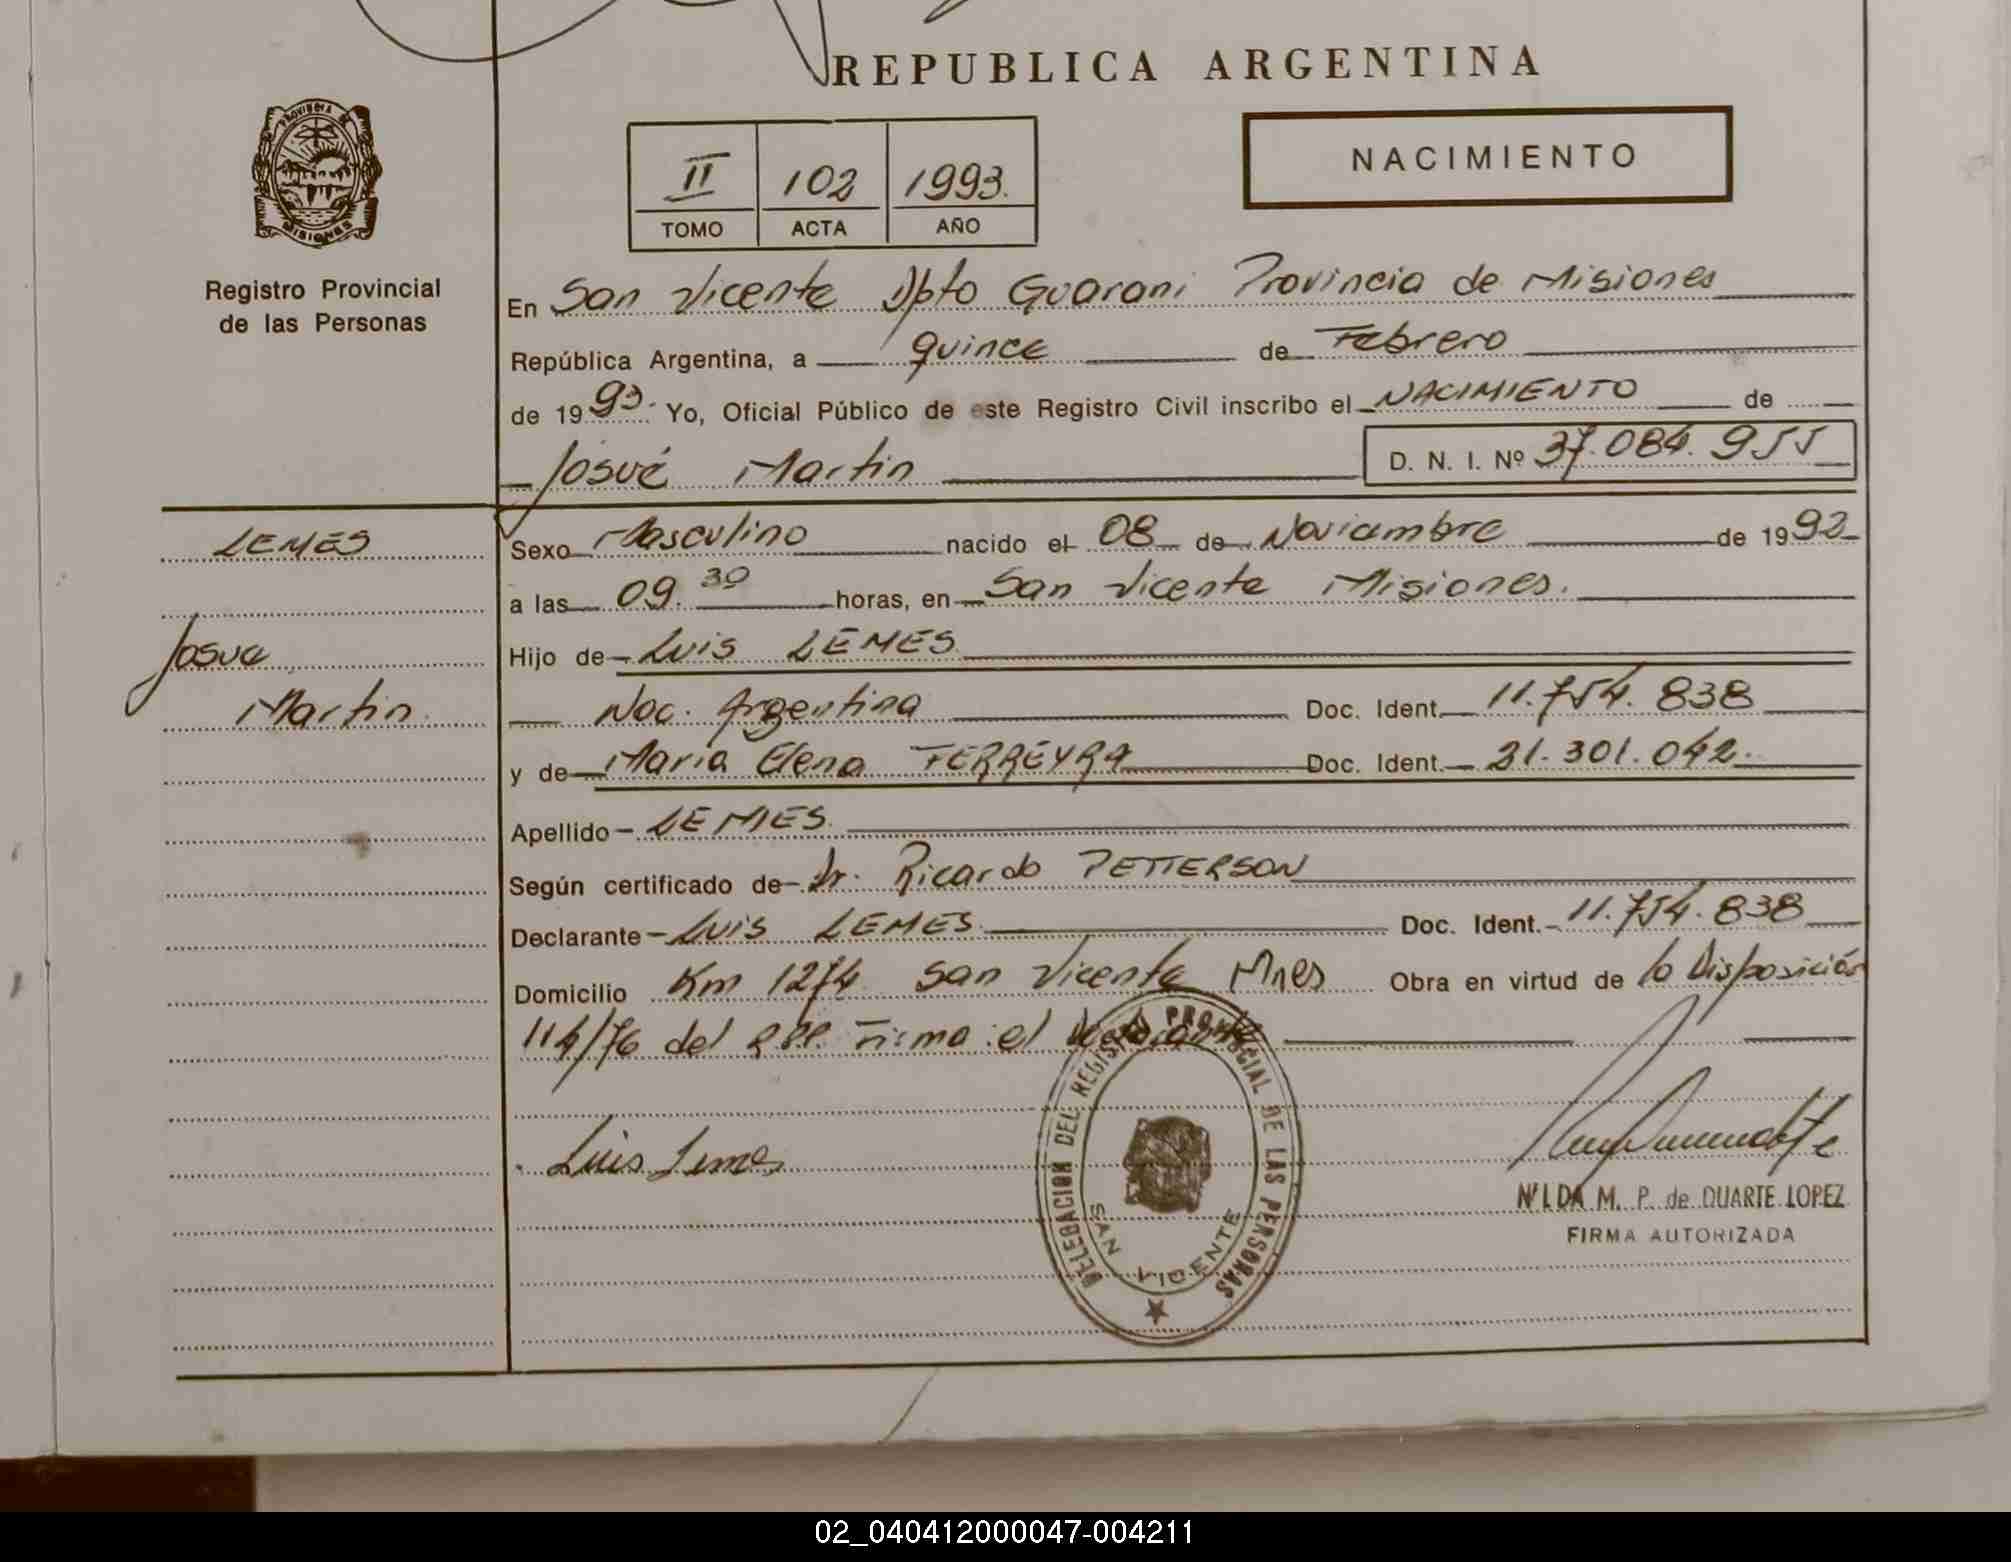 REPUBLICA ARGENTINA
PROVINCIA DE MISIONES
Registro Provincial
de las Personas
II 102 1993.
TOMO ACTA AÑO
NACIMIENTO
En San Vicente Dpto Guarani Provincia de Misiones
República Argentina, a quince de Febrero
de 1993. Yo, Oficial Público de este Registro Civil inscribo el NACIMIENTO de
Josué Martin D. N. I. Nº 37.084.955
LEMES
Josue
Martin.
Sexo Masculino nacido el 08 de Noviembre de 1992
a las 09.30 horas, en San Vicente Misiones.
Hijo de Luis LEMES
Nac. Argentina Doc. Ident. 11.754.838
y de Maria Elena FERREYRA Doc. Ident. 21.301.042.
Apellido LEMES.
Según certificado de Dr. Ricardo PETTERSON
Declarante Luis LEMES Doc. Ident. 11.754.838
Domicilio Km 1274 San Vicente Mnes Obra en virtud de la Disposición
114/76 del RPP. Firma el
Luis Lemes
DELEGACION DEL REGISTRO PROVINCIAL DE LAS PERSONAS
SAN VICENTE
NILDA M. P. de DUARTE LOPEZ
FIRMA AUTORIZADA
02_040412000047-004211